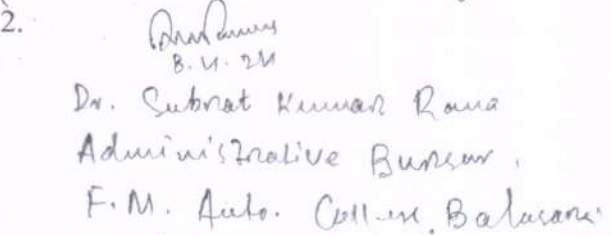 2.
8.4.24
Dr. Subrat Kumar Rana
Administrative Bursar,
F.M. Auto. College, Balasore